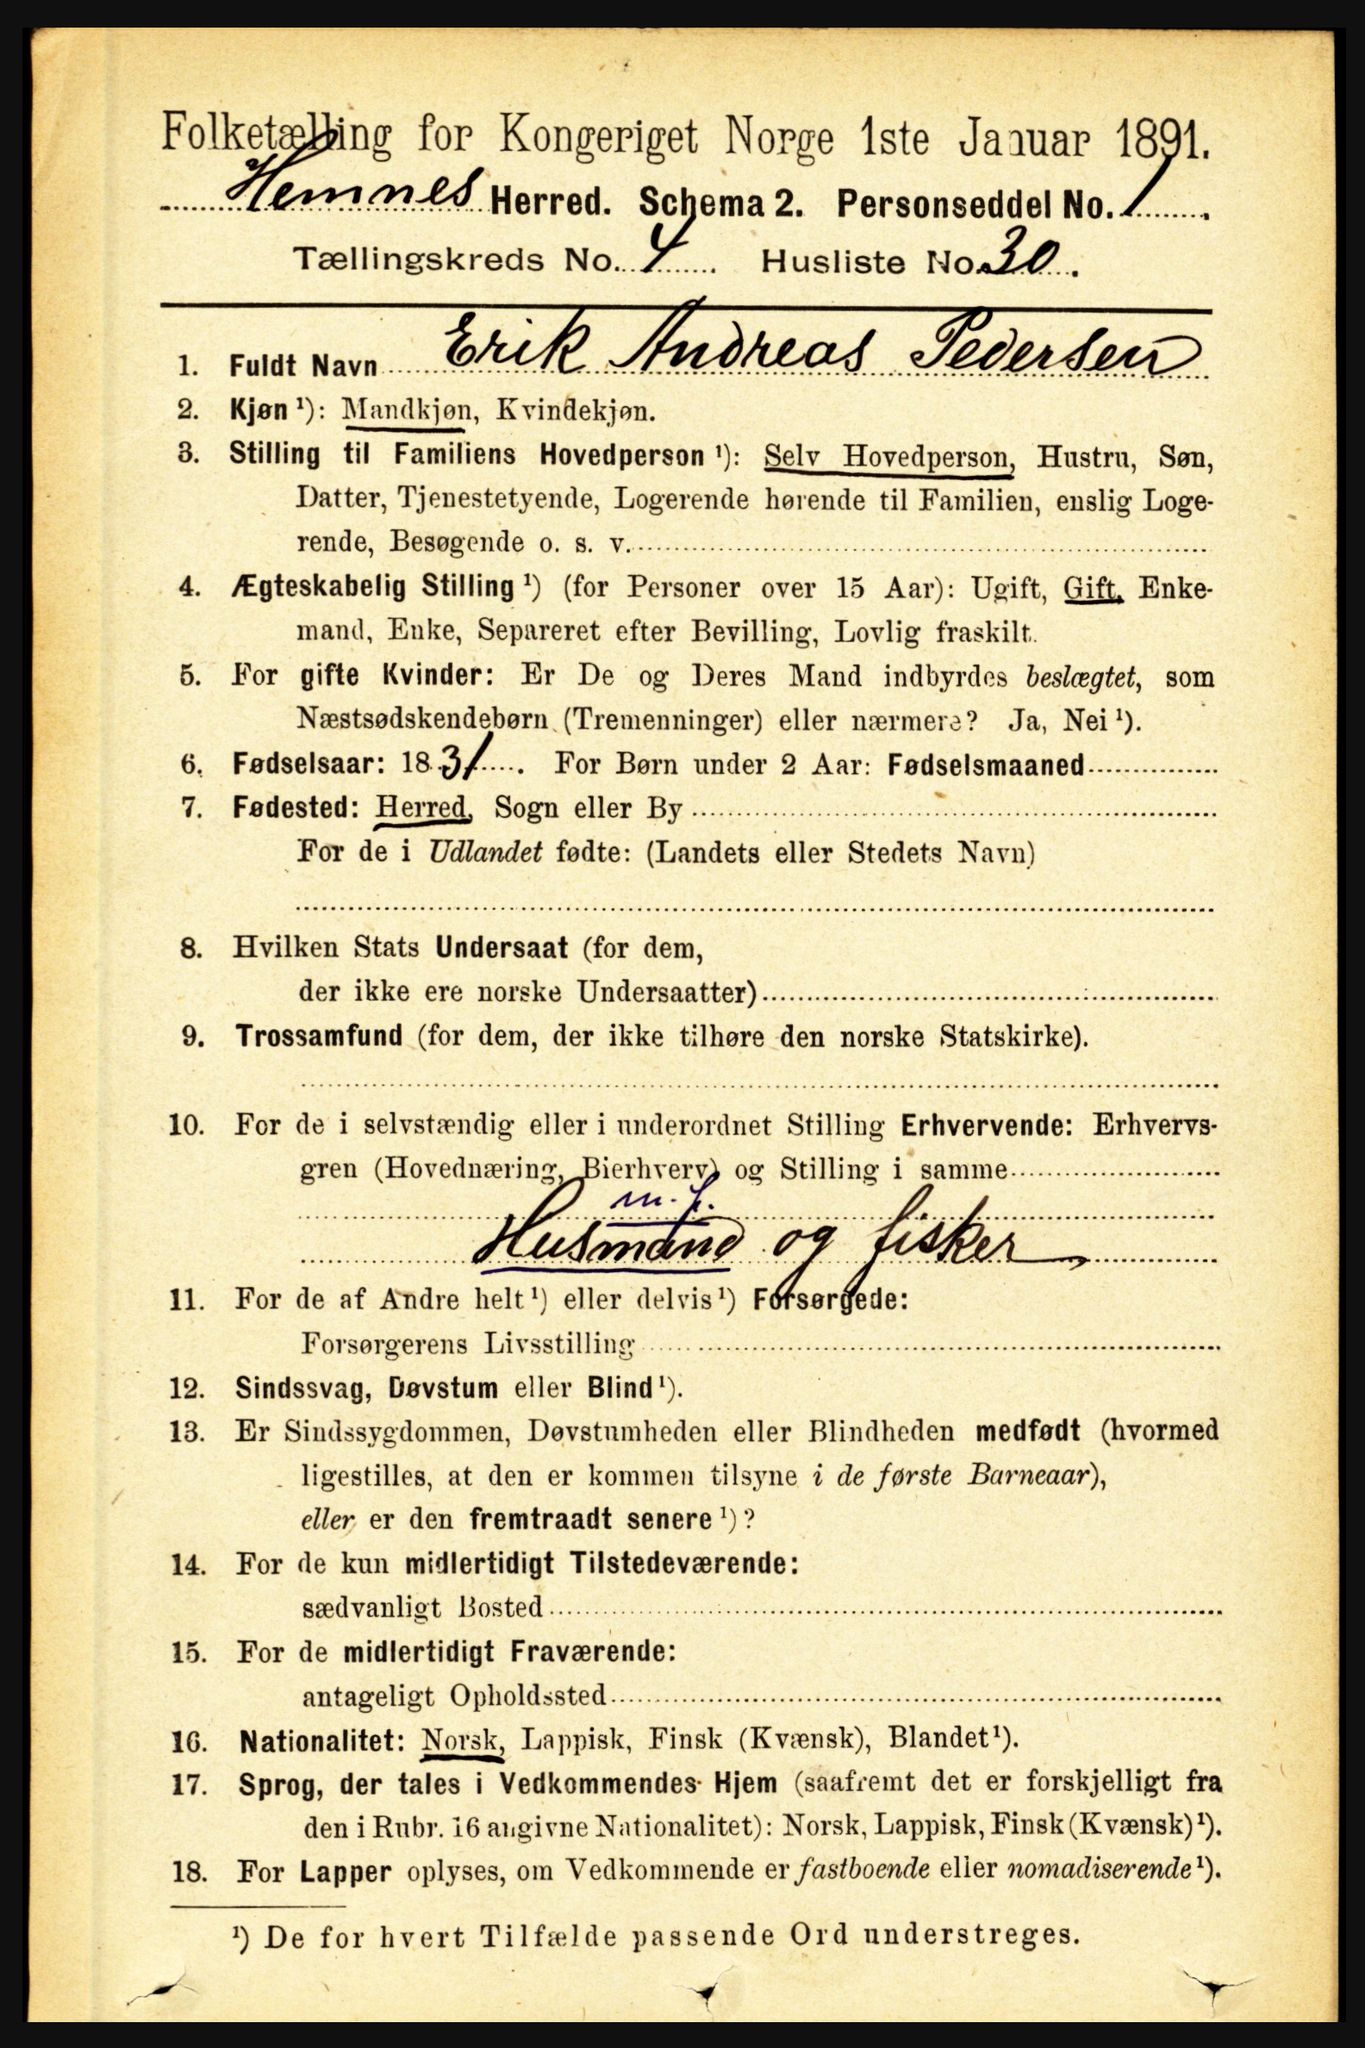 Folketælling for Kongeriget Norge 1ste Januar 1891.
Hemnes Herred. Schema 2. Personseddel No. 1.
Tællingskreds No. 4. Husliste No. 30.
1. Fuldt Navn Erik Andreas Pedersen
2. Kjøn ¹): Mandkjøn, Kvindekjøn.
3. Stilling til Familiens Hovedperson ¹): Selv Hovedperson, Hustru, Søn,
Datter, Tjenestetyende, Logerende hørende til Familien, enslig Loge-
rende, Besøgende o. s. v.
4. Ægteskabelig Stilling ¹) (for Personer over 15 Aar): Ugift, Gift, Enke-
mand, Enke, Separeret efter Bevilling, Lovlig fraskilt.
5. For gifte Kvinder: Er De og Deres Mand indbyrdes beslægtet, som
Næstsødskendebørn (Tremenninger) eller nærmere? Ja, Nei ¹).
6. Fødselsaar: 1831. For Børn under 2 Aar: Fødselsmaaned
7. Fødested: Herred, Sogn eller By
For de i Udlandet fødte: (Landets eller Stedets Navn)
8. Hvilken Stats Undersaat (for dem,
der ikke ere norske Undersaatter)
9. Trossamfund (for dem, der ikke tilhøre den norske Statskirke).
10. For de i selvstændig eller i underordnet Stilling Erhvervende: Erhvervs-
gren (Hovednæring, Bierhverv) og Stilling i samme
m. j.
Husmand og fisker
11. For de af Andre helt ¹) eller delvis ¹) Forsørgede:
Forsørgerens Livsstilling
12. Sindssvag, Døvstum eller Blind ¹).
13. Er Sindssygdommen, Døvstumheden eller Blindheden medfødt (hvormed
ligestilles, at den er kommen tilsyne i de første Barneaar),
eller er den fremtraadt senere ¹)?
14. For de kun midlertidigt Tilstedeværende:
sædvanligt Bosted
15. For de midlertidigt Fraværende:
antageligt Opholdssted
16. Nationalitet: Norsk, Lappisk, Finsk (Kvænsk), Blandet ¹).
17. Sprog, der tales i Vedkommendes Hjem (saafremt det er forskjelligt fra
den i Rubr. 16 angivne Nationalitet): Norsk, Lappisk, Finsk (Kvænsk) ¹).
18. For Lapper oplyses, om Vedkommende er fastboende eller nomadiserende ¹).
¹) De for hvert Tilfælde passende Ord understreges.